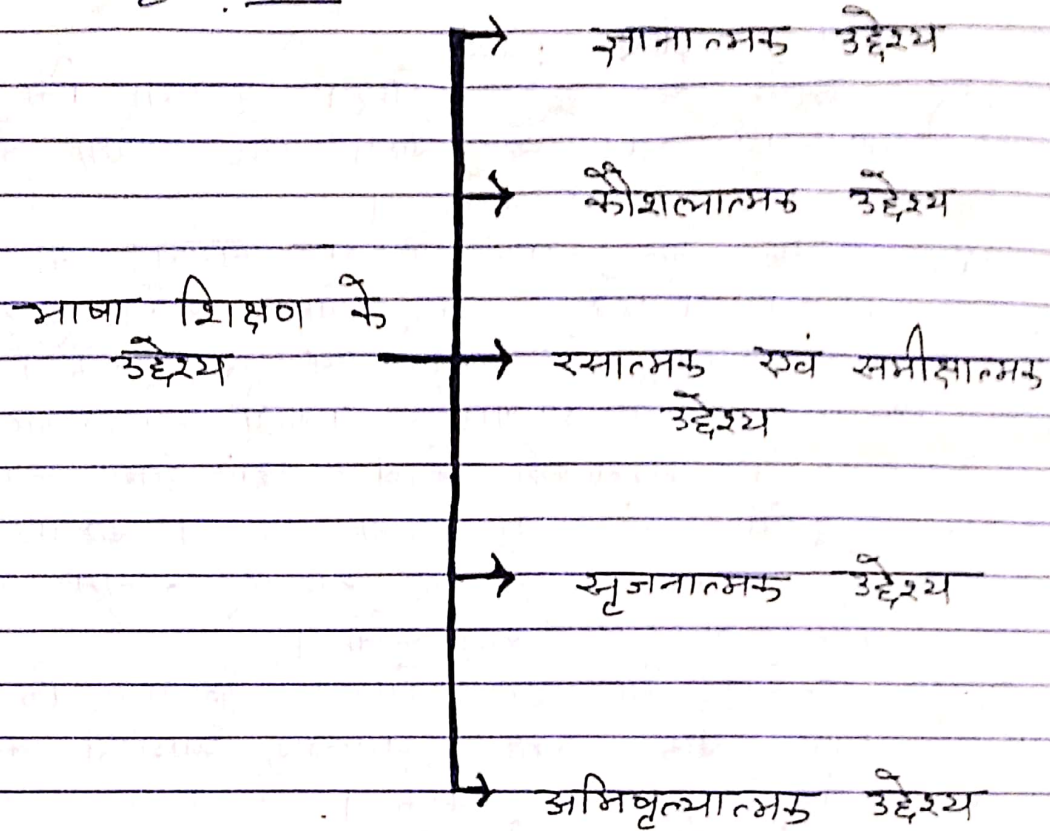 ज्ञानात्मक उद्देश्य
कौशलात्मक उद्देश्य
भाषा शिक्षण के
उद्देश्य
रसात्मक एवं समीक्षात्मक
उद्देश्य
सृजनात्मक उद्देश्य
अभिवृत्यात्मक उद्देश्य